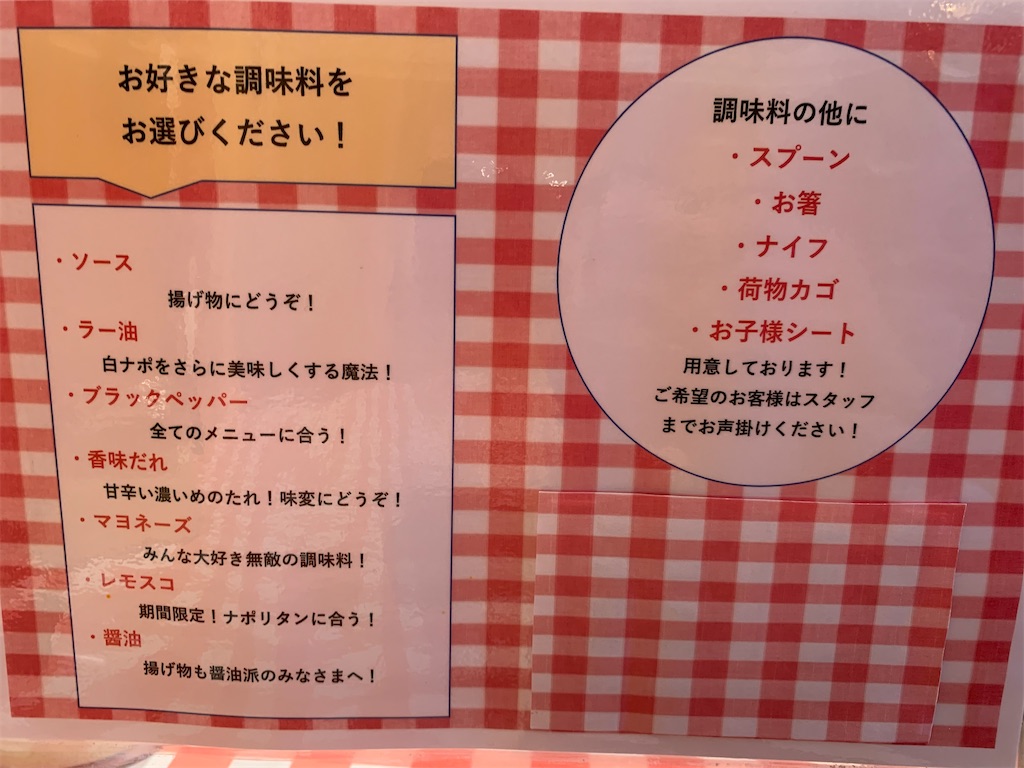 お好きな調味料を
お選びください！
・ソース
揚げ物にどうぞ！
・ラー油
白ナポをさらに美味しくする魔法！
・ブラックペッパー
全てのメニューに合う！
・香味だれ
甘辛い濃いめのたれ！味変にどうぞ！
・マヨネーズ
みんな大好き無敵の調味料！
・レモスコ
期間限定！ナポリタンに合う！
・醤油
揚げ物も醤油派のみなさまへ！
調味料の他に
・スプーン
・お箸
・ナイフ
・荷物カゴ
・お子様シート
用意しております！
ご希望のお客様はスタッフ
までお声掛けください！